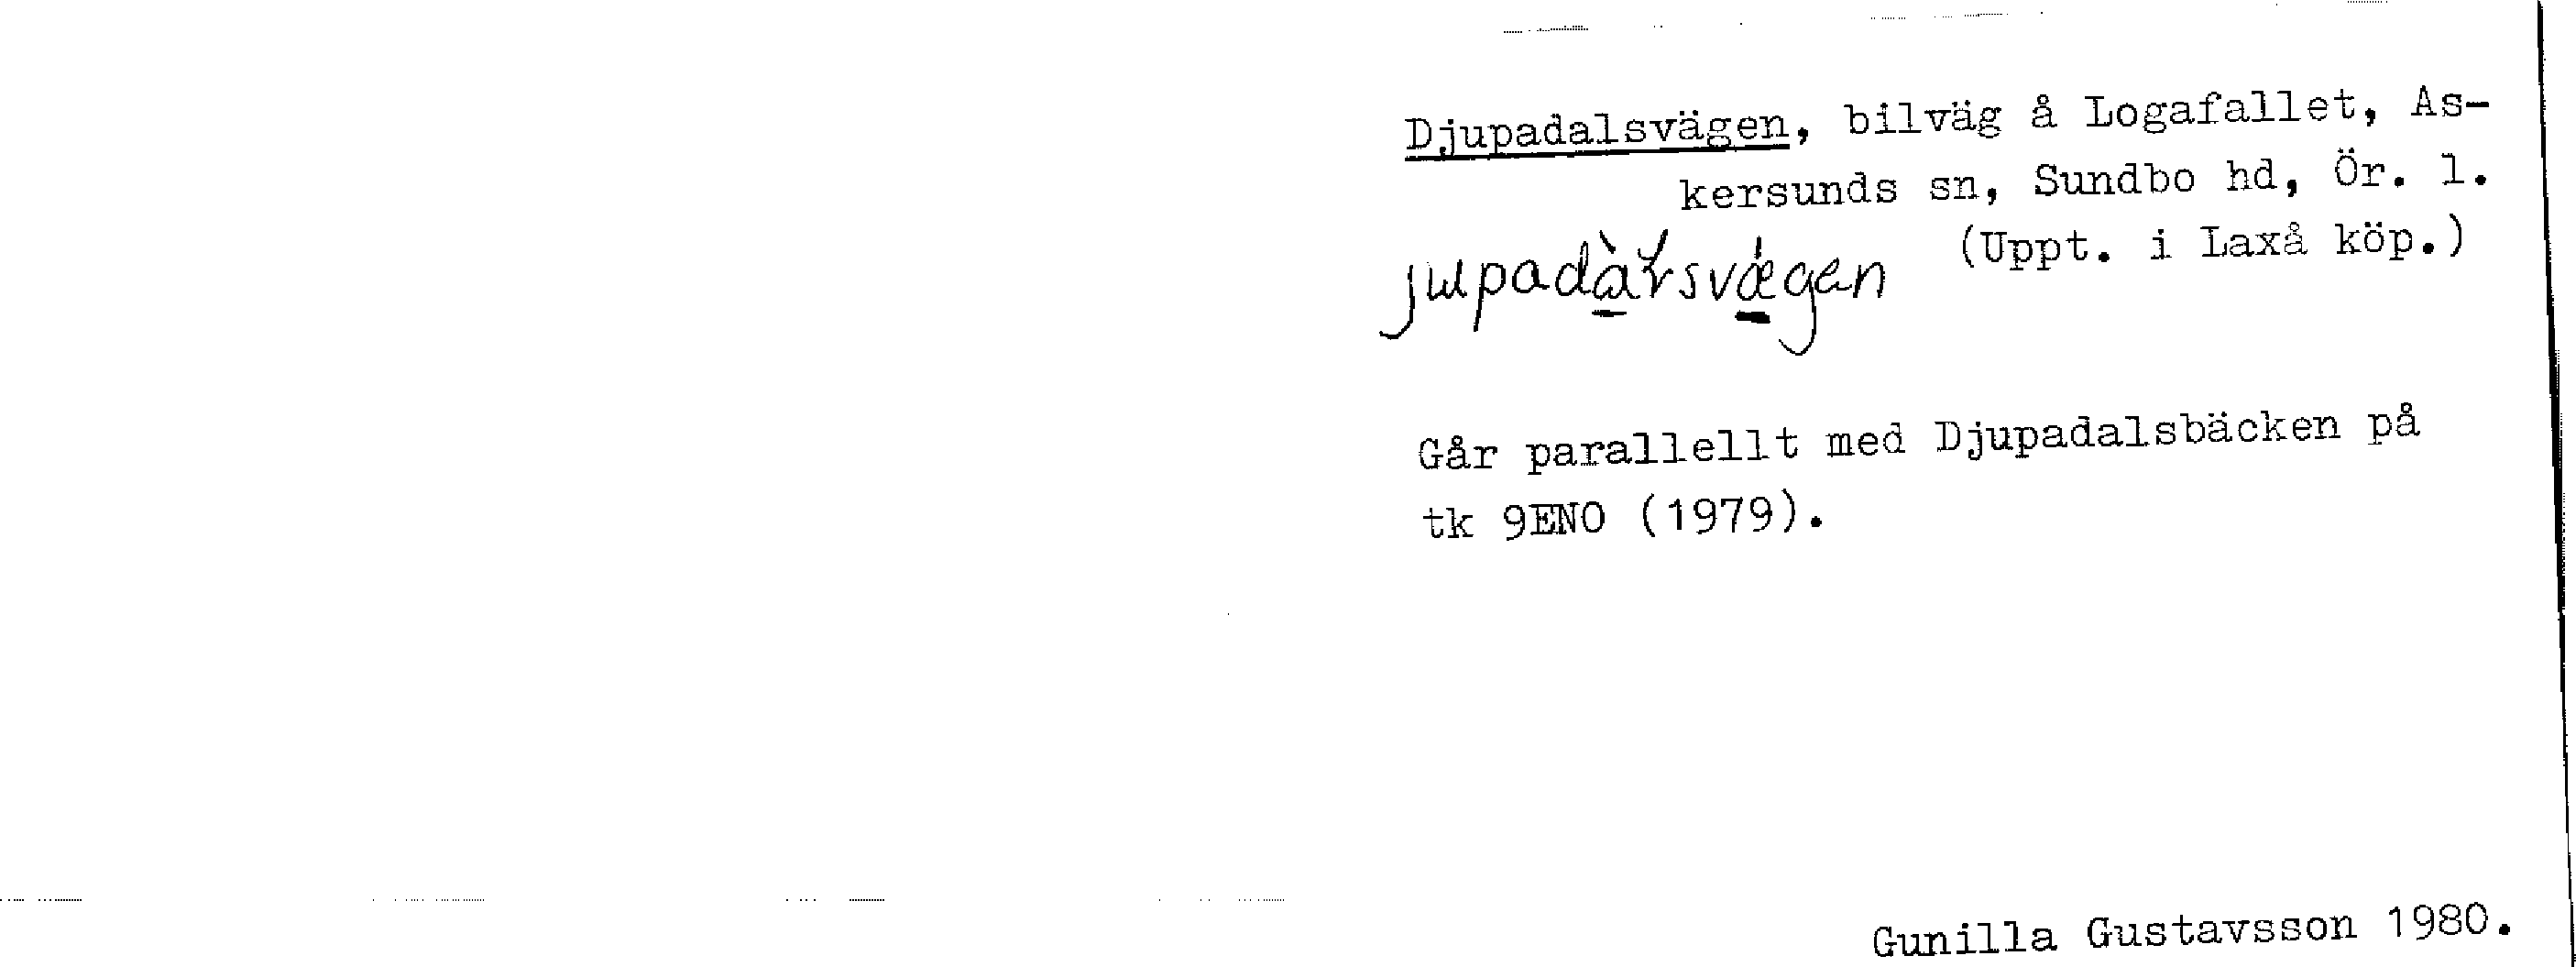 Djupadalsvägen, bilväg å Logafallet, As-
kersunds sn, Sundbo hd, Ör. l.
(Uppt. i Laxå köp.)
Går parallellt med Djupadalsbäcken på
tk 9ENO (1979).
Gunilla Gustavsson 1980.